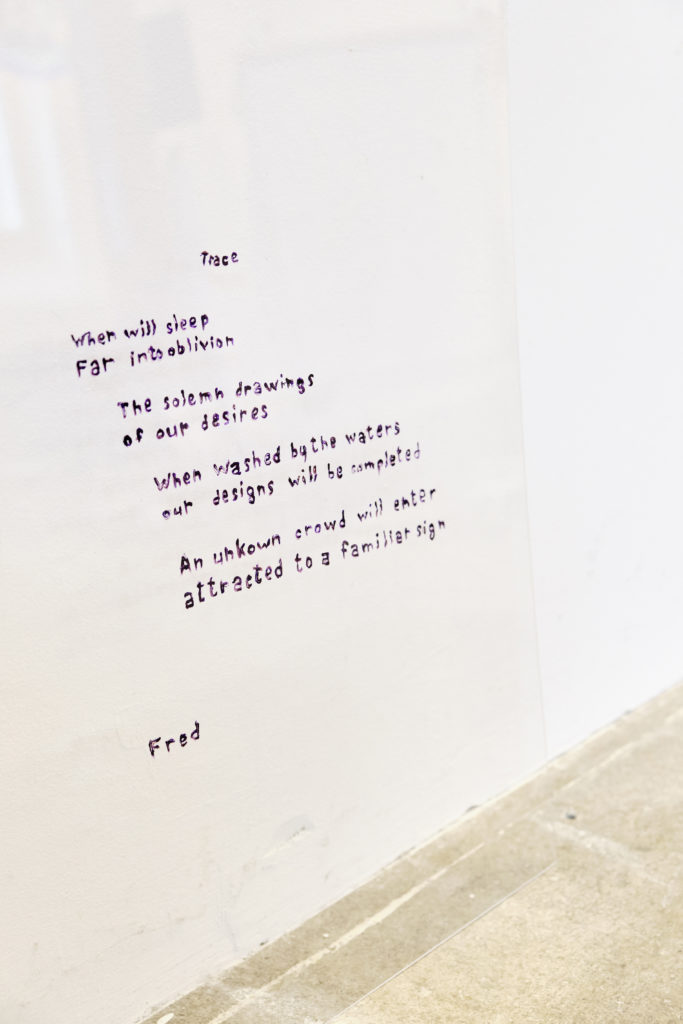 Trace
When will sleep
Far into oblivion
The solemn drawings
of our desires
When washed by the waters
our designs will be completed
An unkown crowd will enter
attracted to a familiar sign
Fred